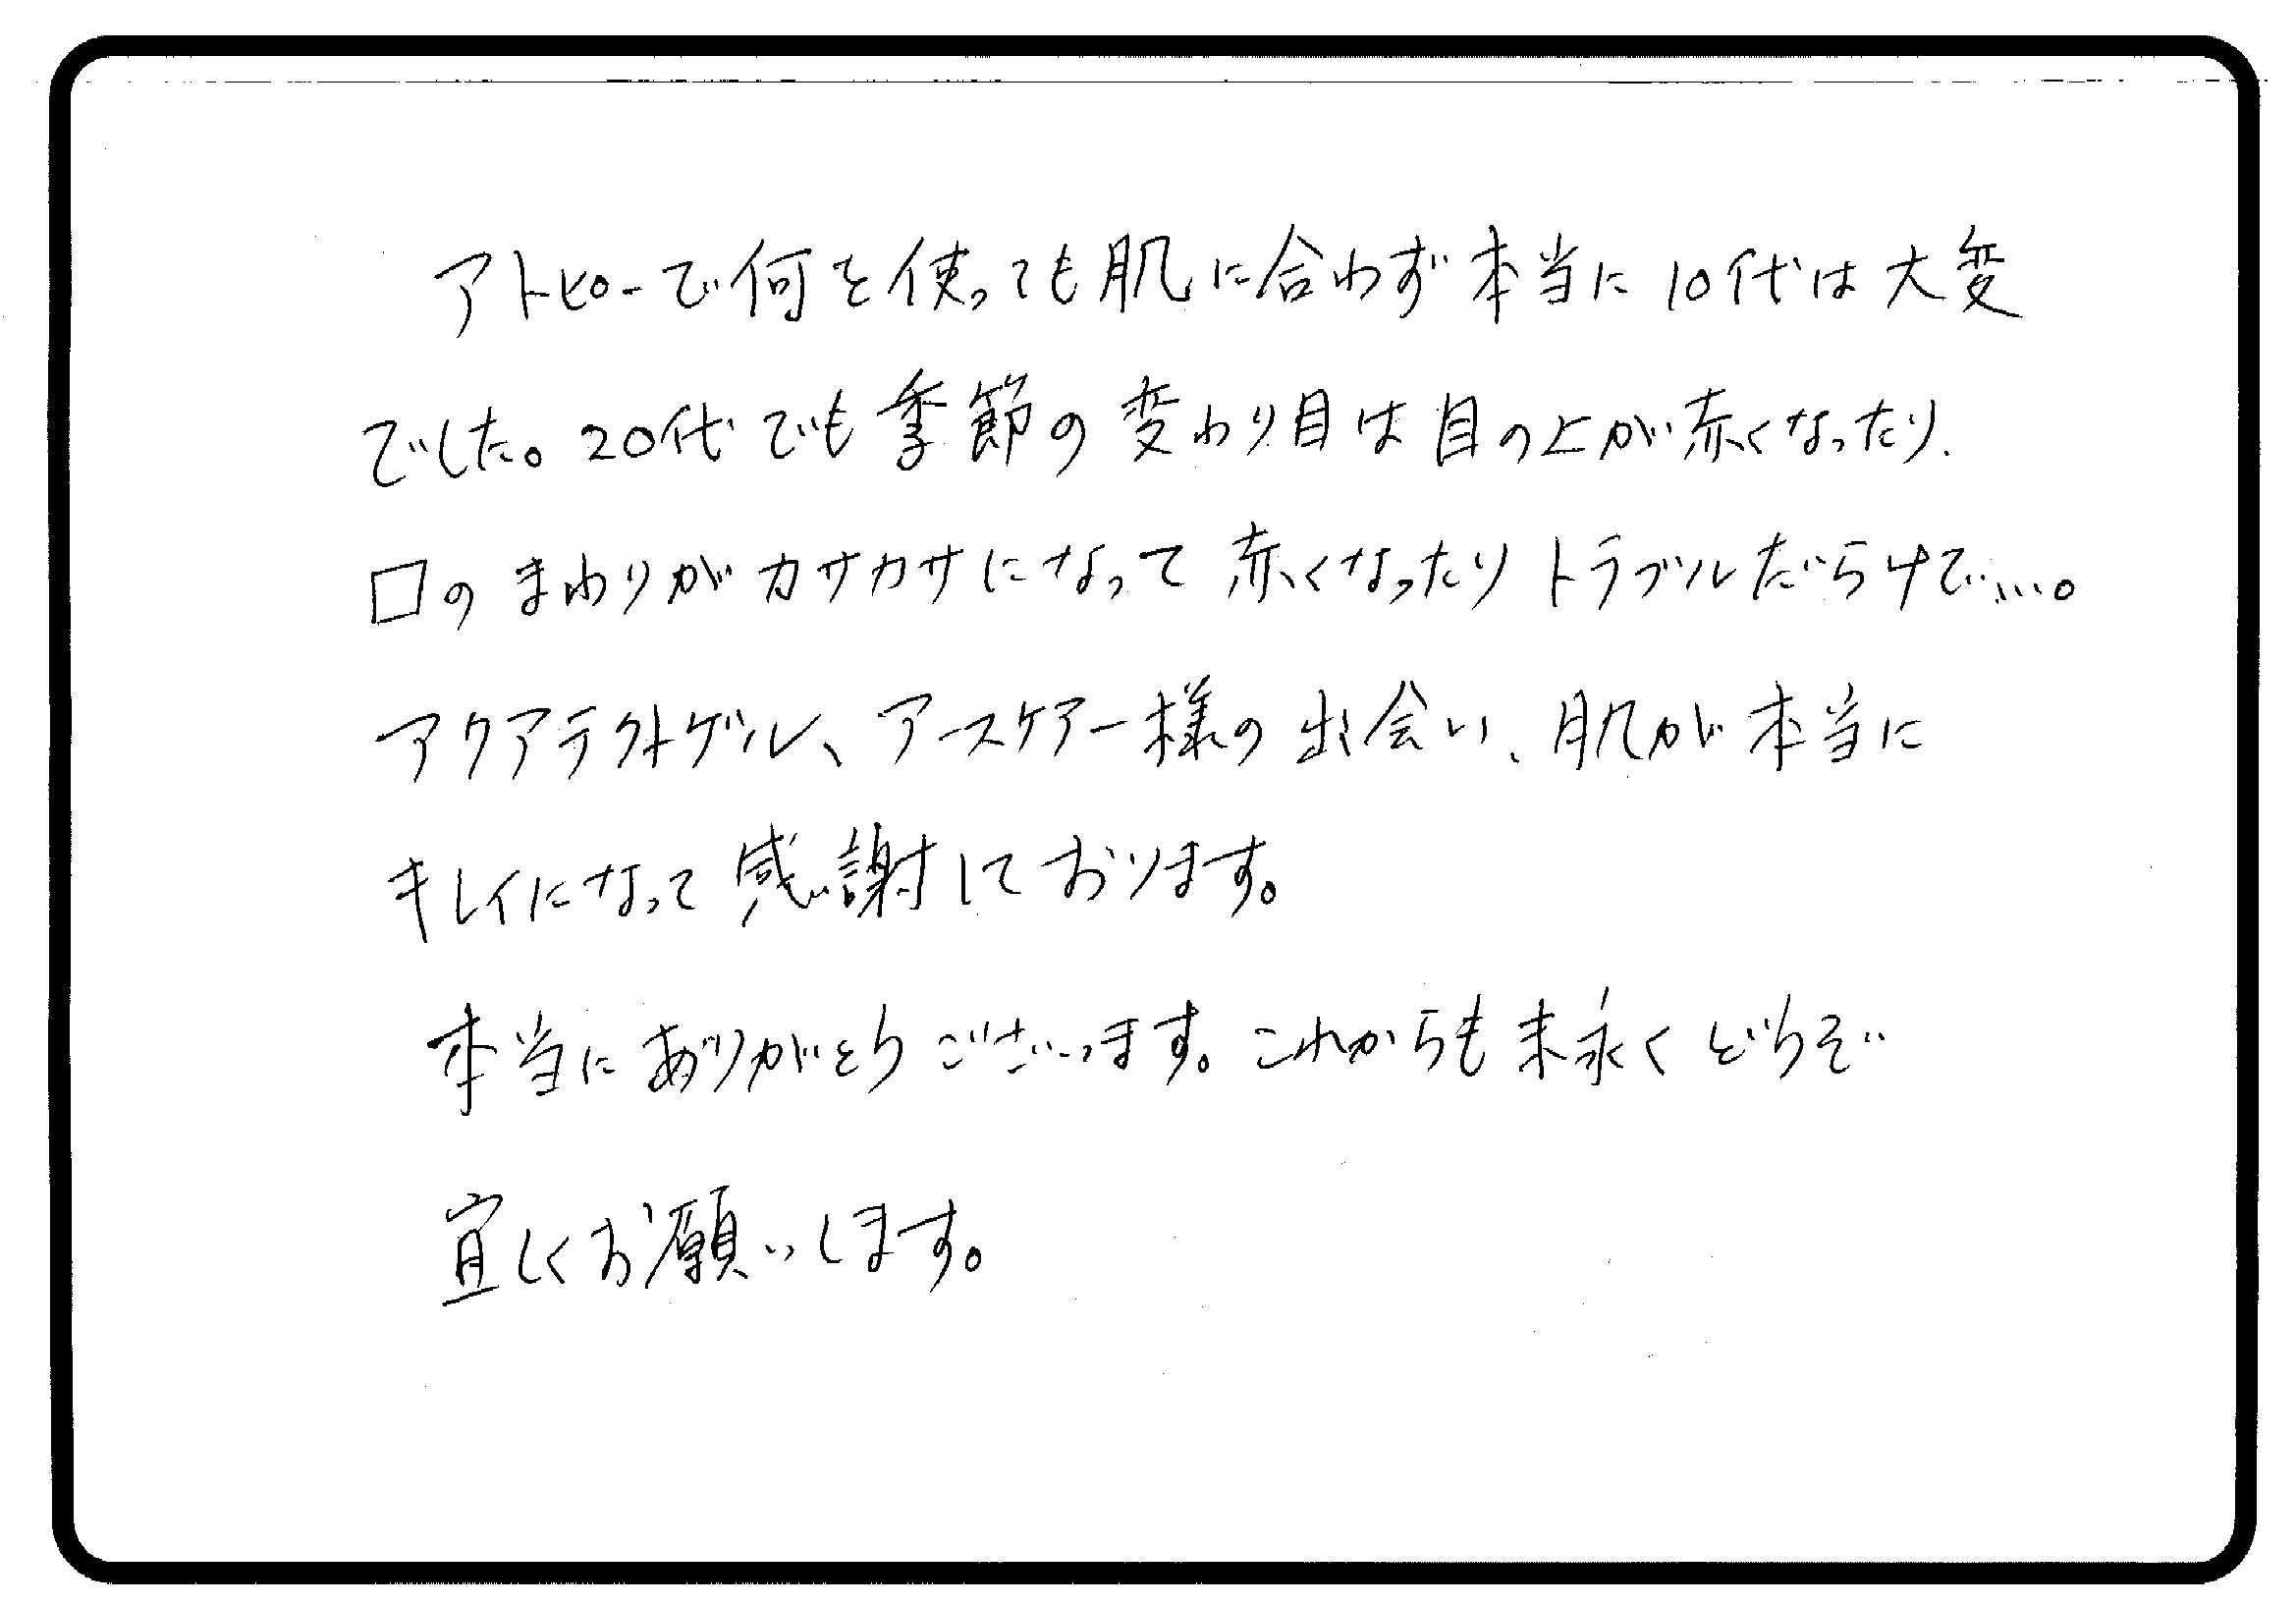 アトピーで何を使っても肌に合わず本当に10代は大変
でした。20代でも季節の変わり目は目の上が赤くなったり、
口のまわりがカサカサになって赤くなったりトラブルだらけで…。
アクアテクトゲル、アースケアー様の出会い、肌が本当に
キレイになって感謝しております。
本当にありがとうございます。これからも末永くどうぞ
宜しくお願いします。